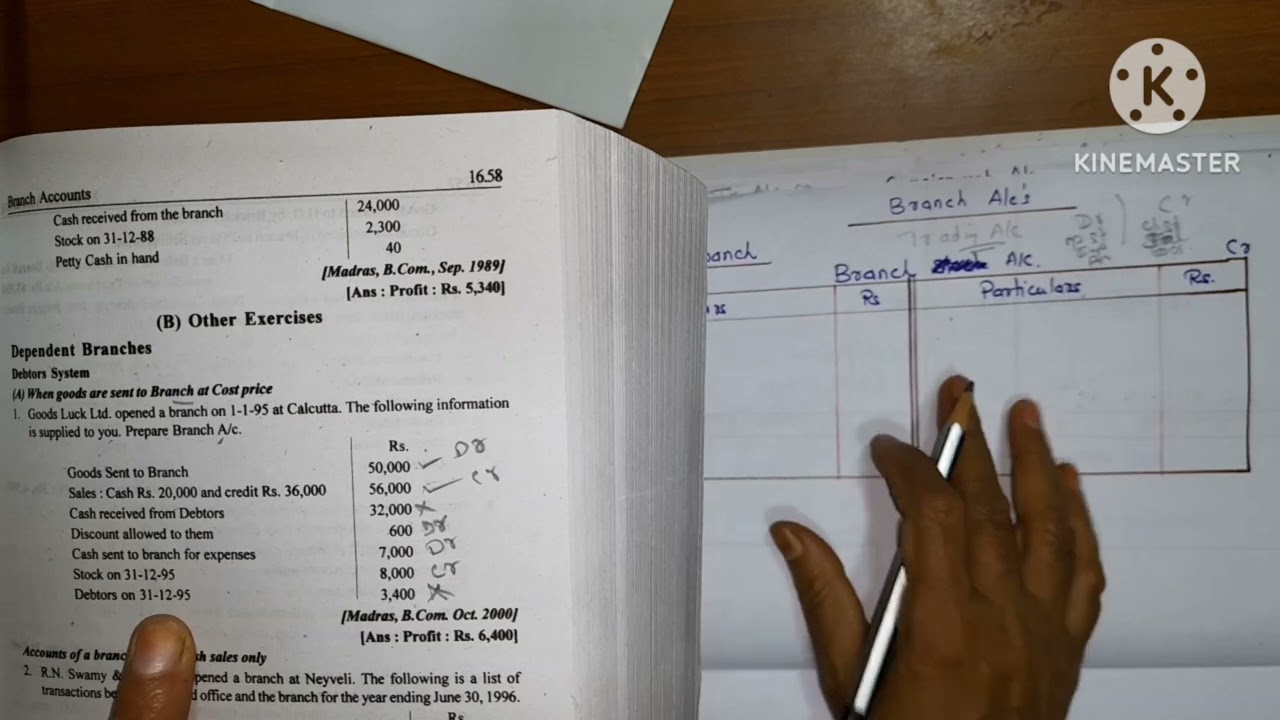 KINEMASTER
16.58
Branch Accounts
Cash received from the branch 24,000
Stock on 31-12-88 2,300
Petty Cash in hand 40
[Madras, B.Com., Sep. 1989]
[Ans : Profit : Rs. 5,340]
(B) Other Exercises
Dependent Branches
Debtors System
(A) When goods are sent to Branch at Cost price
1. Goods Luck Ltd. opened a branch on 1-1-95 at Calcutta. The following information
is supplied to you. Prepare Branch A/c.
Rs.
Goods Sent to Branch 50,000 Dr
Sales : Cash Rs. 20,000 and credit Rs. 36,000 56,000 Cr
Cash received from Debtors 32,000
Discount allowed to them 600 Dr
Cash sent to branch for expenses 7,000 Dr
Stock on 31-12-95 8,000 Cr
Debtors on 31-12-95 3,400
[Madras, B.Com. Oct. 2000]
[Ans : Profit : Rs. 6,400]
Accounts of a sh sales only
2. R.N. Swamy & pened a branch at Neyveli. The following is a list of
transactions d office and the branch for the year ending June 30, 1996.
Rs
Branch A/c's
Trading A/c
Dr
Cr
Branch A/c. Cr
Rs Particulars Rs.